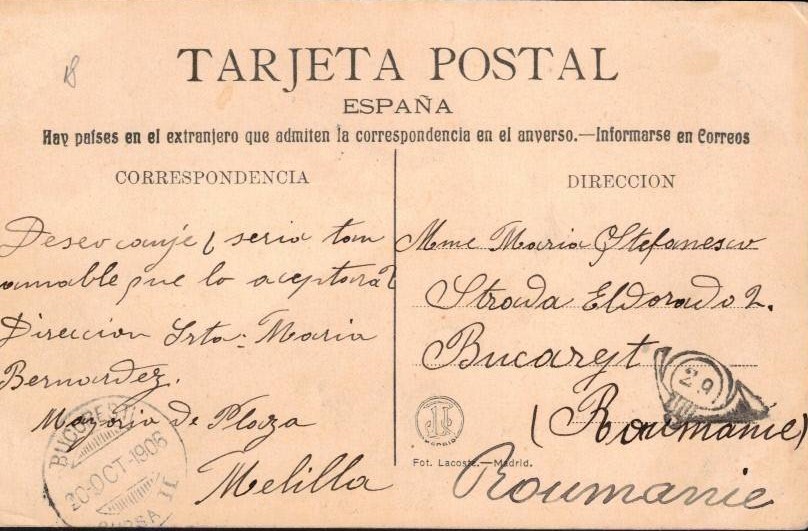 TARJETA POSTAL
ESPAÑA
Hay países en el extranjero que admiten la correspondencia en el anverso.—Informarse en Correos
CORRESPONDENCIA
Deseo canje ¿ seria tan
amable que lo aceptara?
Direccion Srta. Maria
Bernardez.
Mayoria de Plaza
Melilla
BUCURESTI
20·OCT·1906
BURSA II
DIRECCION
Mme Maria Stefanescu
Strada Eldorado 2.
Bucarest
(Roumanie)
Roumanie
29
Fot. Lacoste.—Madrid.